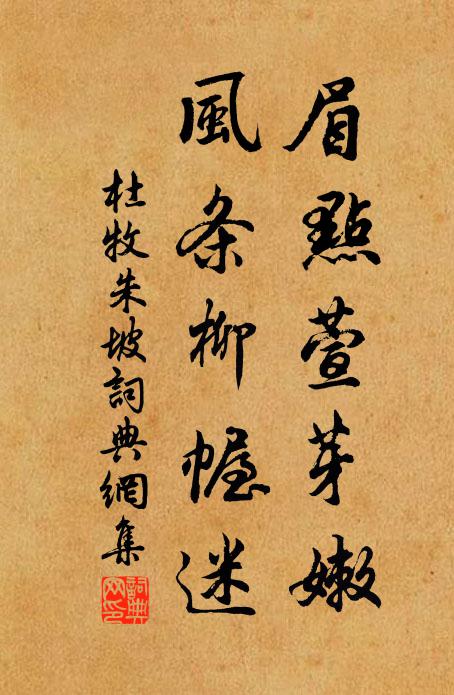 眉點萱芽嫩
風条柳幄迷
杜牧朱坡詞典網集
詞典网印